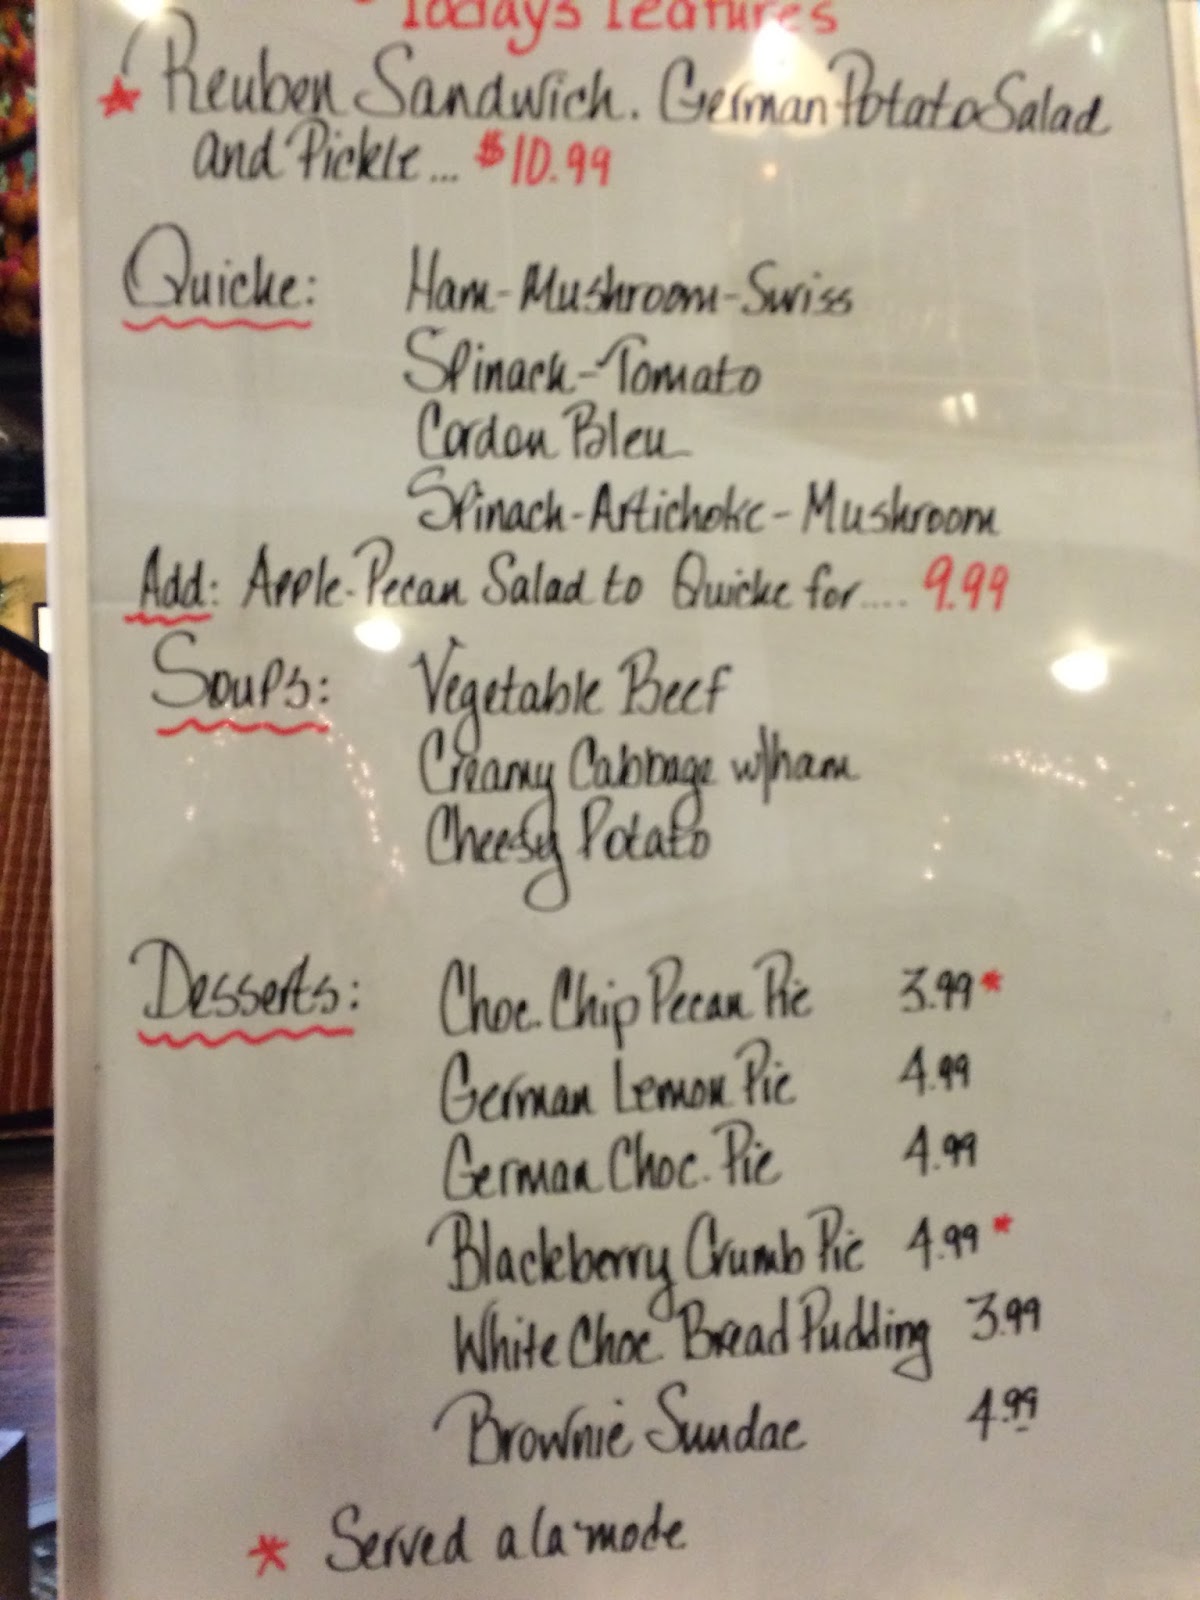 Todays Features
* Reuben Sandwich. German Potato Salad
and Pickle... $10.99
Quicke: Ham-Mushroom-Swiss
Spinach-Tomato
Cordon Bleu
Spinach-Artichoke-Mushroom
Add: Apple-Pecan Salad to Quicke for.... 9.99
Soups: Vegetable Beef
Creamy Cabbage w/ham
Cheesy Potato
Desserts: Choc. Chip Pecan Pie 3.99*
German Lemon Pie 4.99
German Choc. Pie 4.99
Blackberry Crumb Pie 4.99*
White Choc. Bread Pudding 3.99
Brownie Sundae 4.99
* Served a la mode